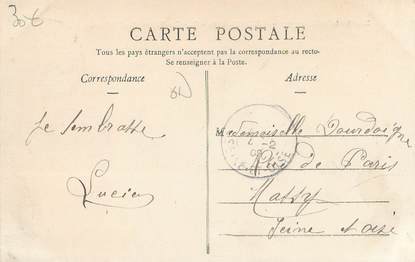 30€
CARTE POSTALE
Tous les pays étrangers n'acceptent pas la correspondance au recto-
Se renseigner à la Poste.
Correspondance
Adresse
Je t'embrasse
Lucien
Mademoiselle Dourdoigne
Rue de Paris
Massy
Seine & Oise